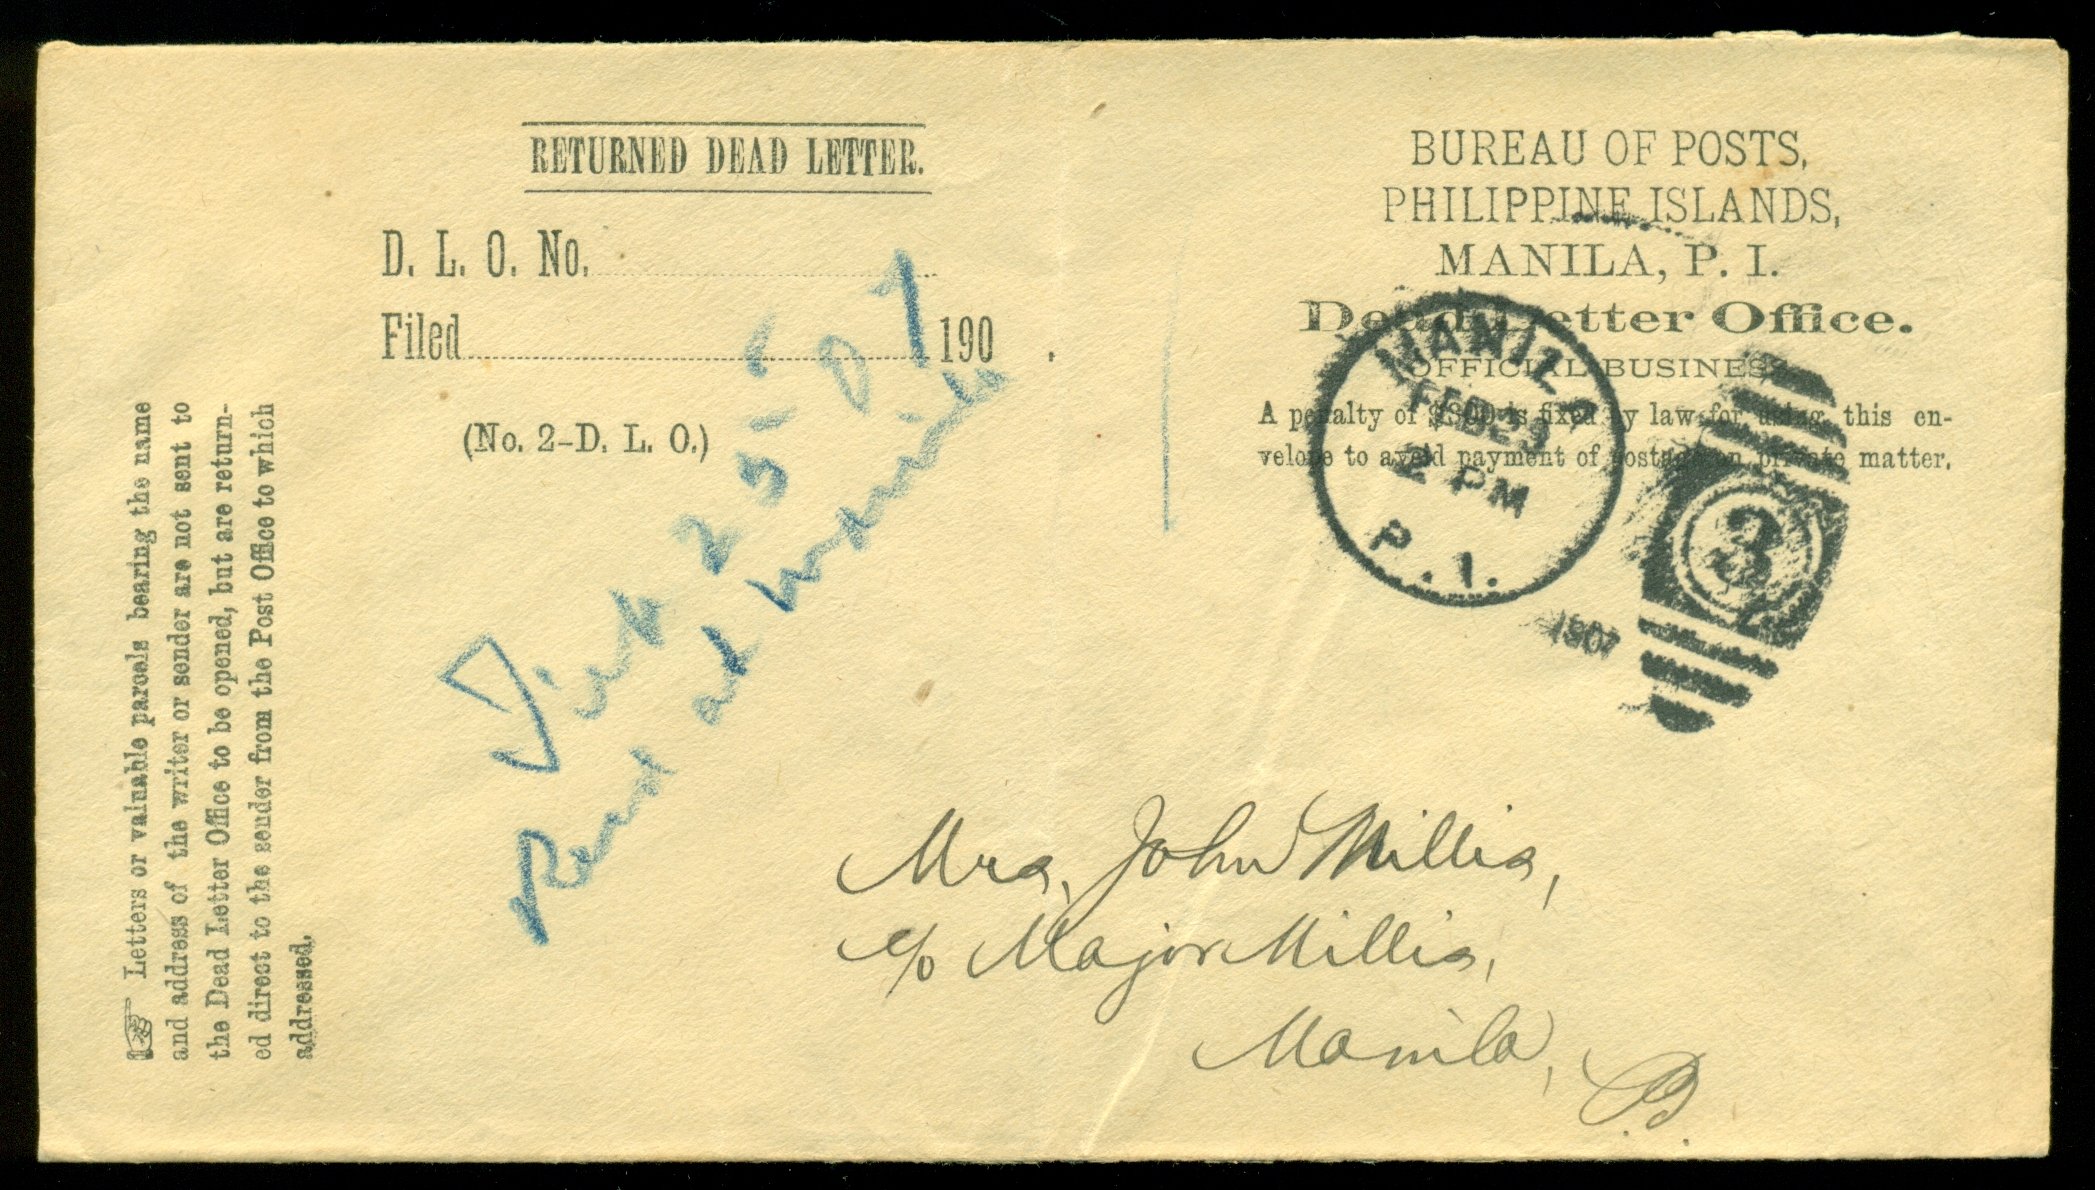 RETURNED DEAD LETTER.
D. L. O. No.
Filed 190 .
(No. 2-D. L. O.)
BUREAU OF POSTS,
PHILIPPINE ISLANDS,
MANILA, P. I.
Dead Letter Office.
OFFICIAL BUSINESS.
A penalty of $300 is fixed by law for using this en-
velope to avoid payment of postage on private matter.
MANILA
FEB 23
2 PM
P. I.
1907
3
☞ Letters or valuable parcels bearing the name
and address of the writer or sender are not sent to
the Dead Letter Office to be opened, but are return-
ed direct to the sender from the Post Office to which
addressed.
2 5 - 07
at
Mrs. John Millis,
c/o Major Millis,
Manila,
P.I.